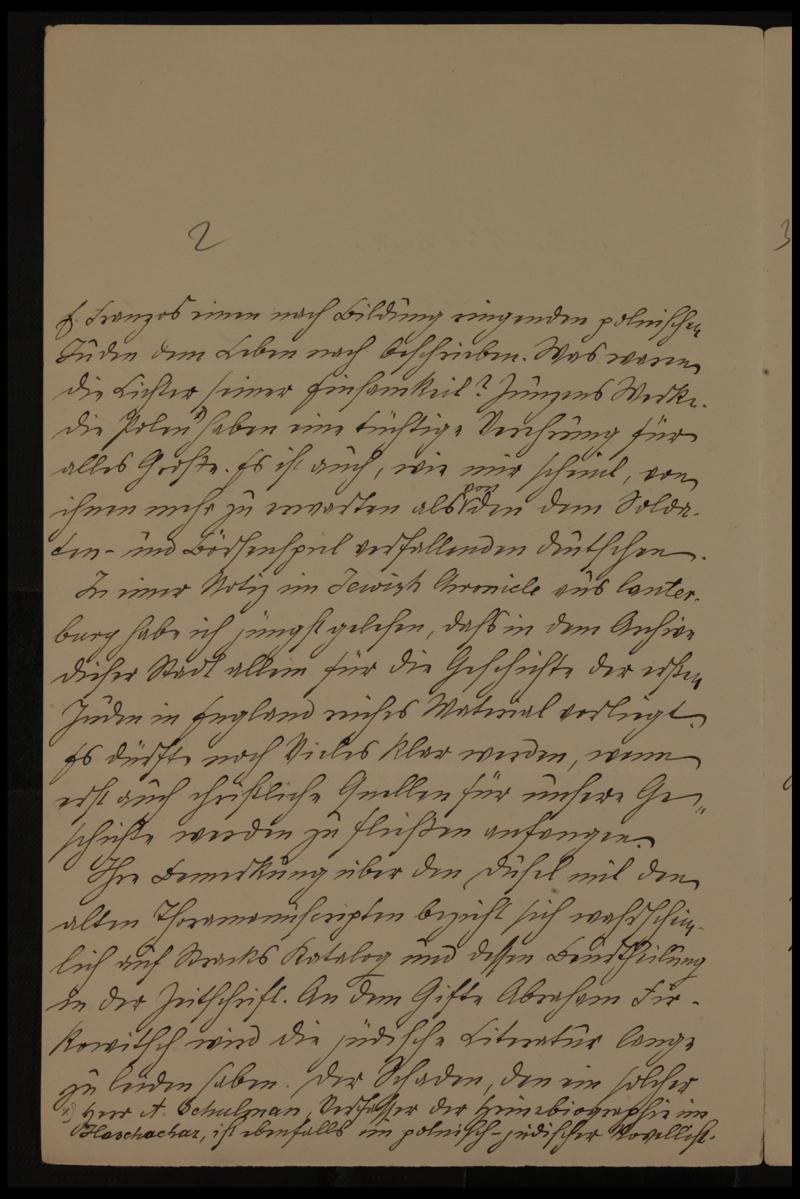 2
3
E. Franzos einen nach Bildung ringenden polnischen
Juden dem Leben nach beschrieben. Was waren
die Lichter seiner Einsamkeit? Zunzens Werke.
die Polen *) haben eine tüchtige Verehrung für
alles Große. Es ist auch, wie mir scheint, von
ihnen mehr zu erwarten als von den dem Solda-
ten- und Börsenspiel verfallenden Deutschen.
In einer Notiz im Jewish Chronicle aus Canter-
bury habe ich jüngst gelesen, daß in dem Archive
dieser Stadt allein für die Geschichte der ersten
Juden in England reiches Material vorliegt.
Es dürfte noch Vieles klar werden, wenn
erst auch christliche Quellen für unsere Ge-
schichte werden zu fließen anfangen.
Ihre Bemerkung über den Dusel mit den
alten Thoramanuscripten bezieht sich wahrschein-
lich auf Stracks Katalog und dessen Beurtheilung
in der Zeitschrift. An dem Gifte Abraham Fir-
kowitsch wird die jüdische Literatur lange
zu leiden haben. Der Schaden, den ein solcher
*) Herr A. Schulman, Verfasser der Heinebiographie im
Haschachar, ist ebenfalls ein polnisch-jüdischer Novellist.